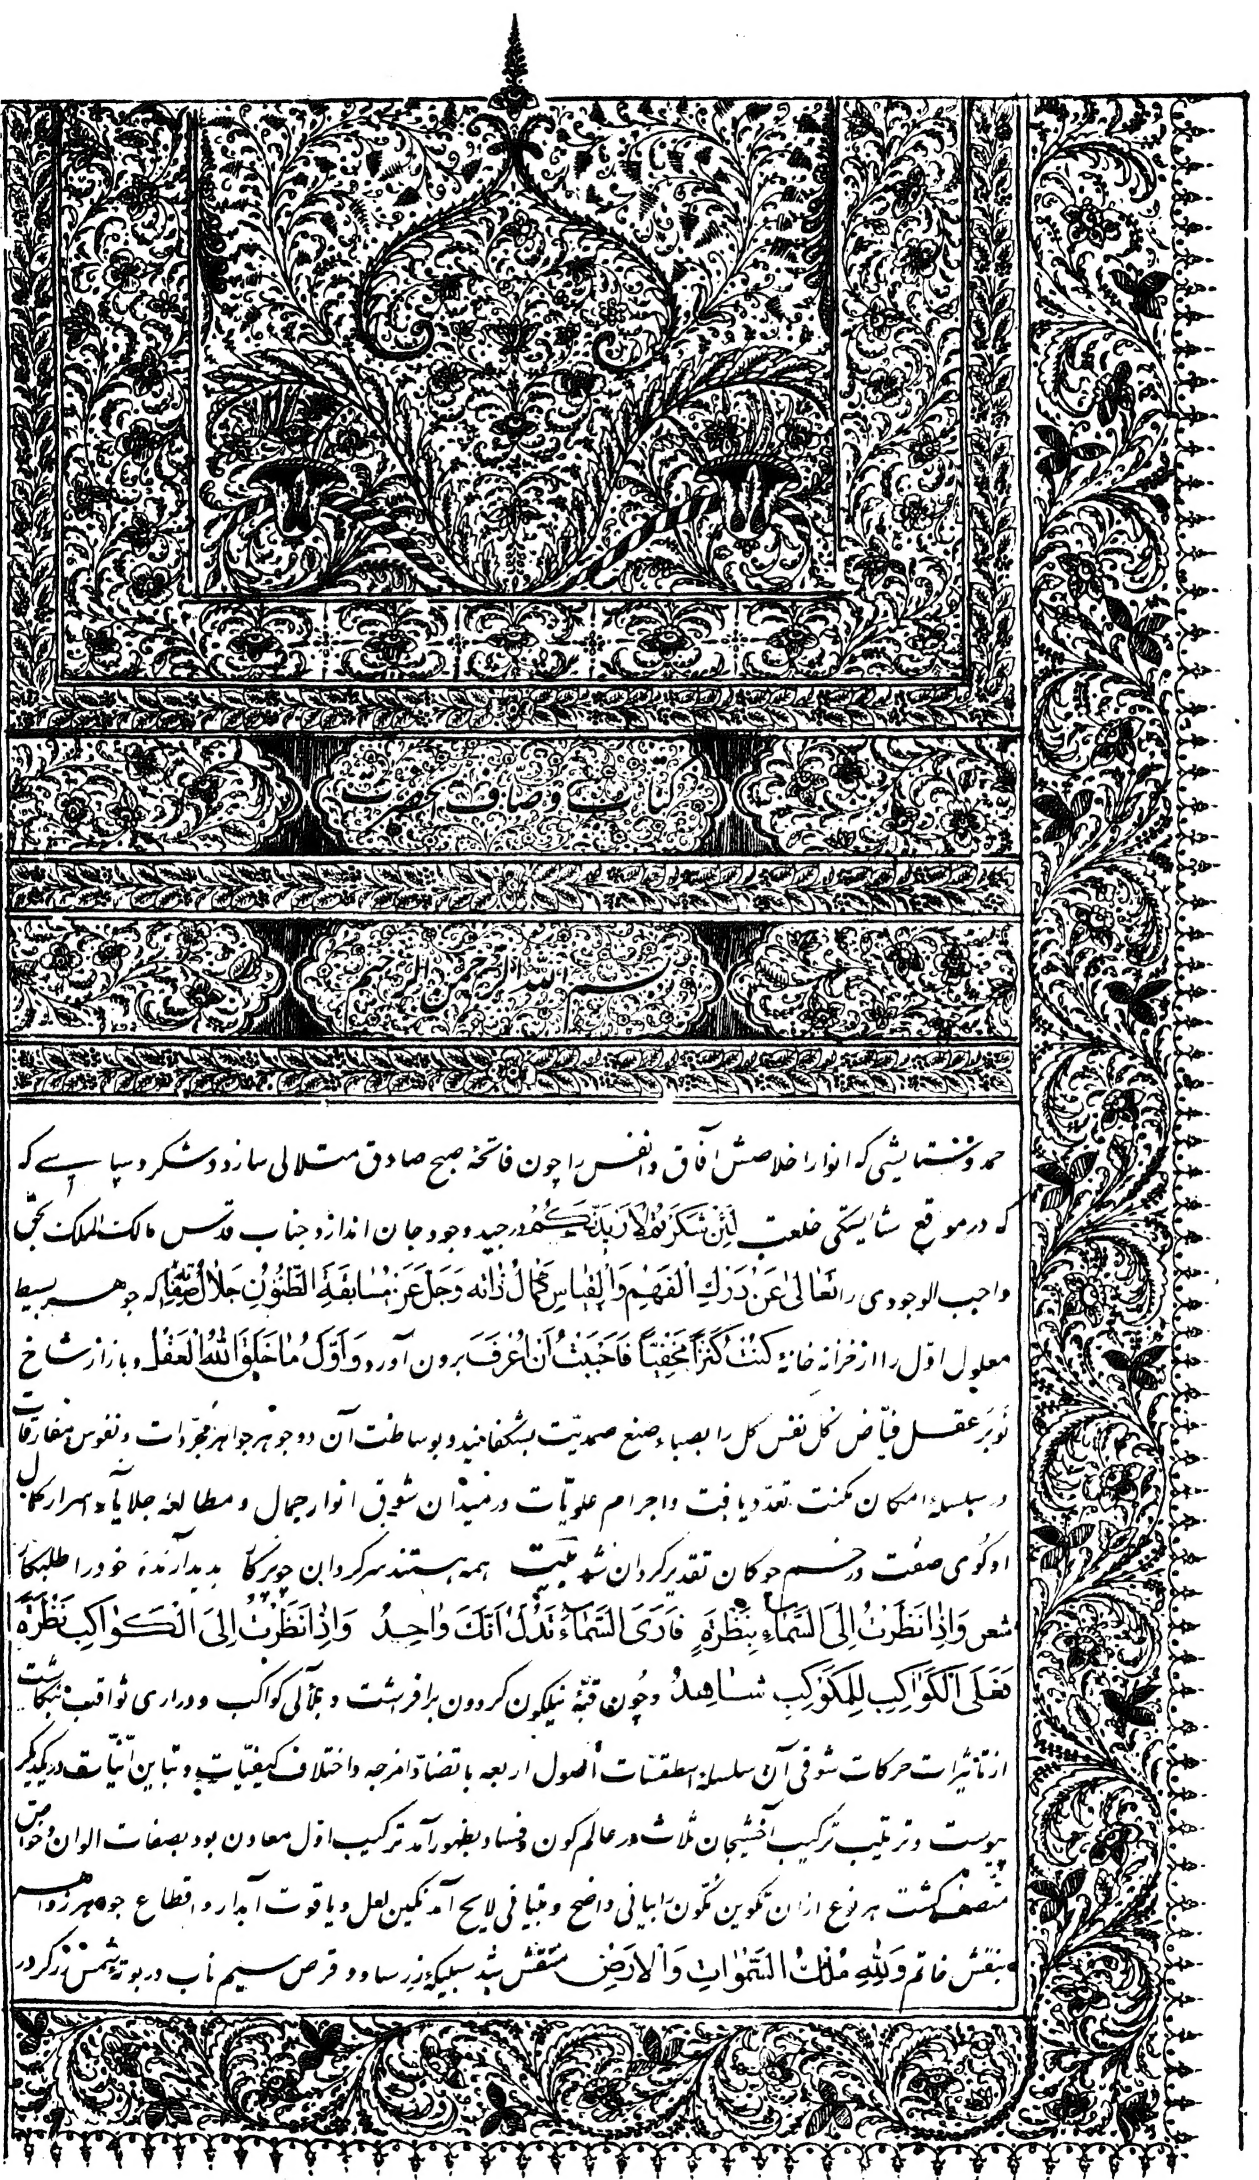 کتاب وصاف الحضرت
بسم الله الرحمن الرحیم
حمد و ستایشی که انوار اخلاصش آفاق و انفس را چون فاتحهٔ صبح صادق متلالی سازد و شکر و سپاسی که
که در موقع شایستگی خلعت لَئِنْ شَكَرْتُمْ لَأَزِيدَنَّكُمْ در جید وجود جان اندازد جناب قدس مالک الملک بحق
واجب الوجودی را تَعَالىٰ عَنْ دَرْكِ الْفَهْمِ وَالْقِيَاسِ كَمَالُ ذَاتِهِ وَجَلَّ عَنْ مُسَابَقَةِ الظُّنُوْنِ جَلَالُ صِفَاتِهِ که جوهر بسیط
معلول اوّل را از خزانه خانهٔ كُنْتُ كَنْزاً مَخْفِيّاً فَاَحْبَبْتُ اَنْ اُعْرَفَ برون آورد وَ اَوَّلُ مَا خَلَقَ اللهُ الْعَقْلُ و باز از شاخ
نَوبَر عقل فیّاض گل نفس کل را بصباء صنع صمدیّت بشکفانید و بوساطت آن دو جوهر جواهر مجرّدات و نفوس مفارقات
در سلسلهٔ امکان مکنت تعدّد یافت و اجرام علویّات در میدان شوق انوار جمال و مطالعهٔ جلایاء اسرار کمال
او گوی صفت در خم چوگان تقدیر گردان شد بیت همه هستند سرگردان چو پرگار پدید آرندهٔ خود را طلبکار
شعر وَاِذَا نَظَرْتُ اِلَى السَّمَاءِ بِنَظْرَةٍ فَاَرَى السَّمَاءَ تَدُلُّ اَنَّكَ وَاحِدُ وَاِذَا نَظَرْتُ اِلَى الْكَوَاكِبِ نَظْرَةً
فَعَلَى الْكَوَاكِبِ لِلْمُكَوْكِبِ شَاهِدُ و چون قبّهٔ نیلگون گردون برافراشت و بلآلی کواکب و دراری ثواقب بنگاشت
از تاثیرات حرکات شوقی آن سلسلهٔ اسطقسّات اصول اربعه با تضادّ امزجه و اختلاف کیفیّات و تباین انّیّات در یکدیگر
پیوست و ترتیب ترکیب آخشیجان ثلاث در عالم کون و فساد بظهور آمد ترکیب اوّل معادن بود بصفات الوان و خواص
متصف گشت هر نوع از ان تکوین تکوّن را بیانی واضح و تبیانی لایح آمد نگین لعل و یاقوت آبدار و اقطاع جواهر زواهر
بنقش خاتم وَلِلّٰهِ مُلْكُ السَّمٰوَاتِ وَالْاَرْضِ منتقش شد سبیکهٔ زر ساو و قرص سیم ناب در بوتهٔ شمس زرگر در